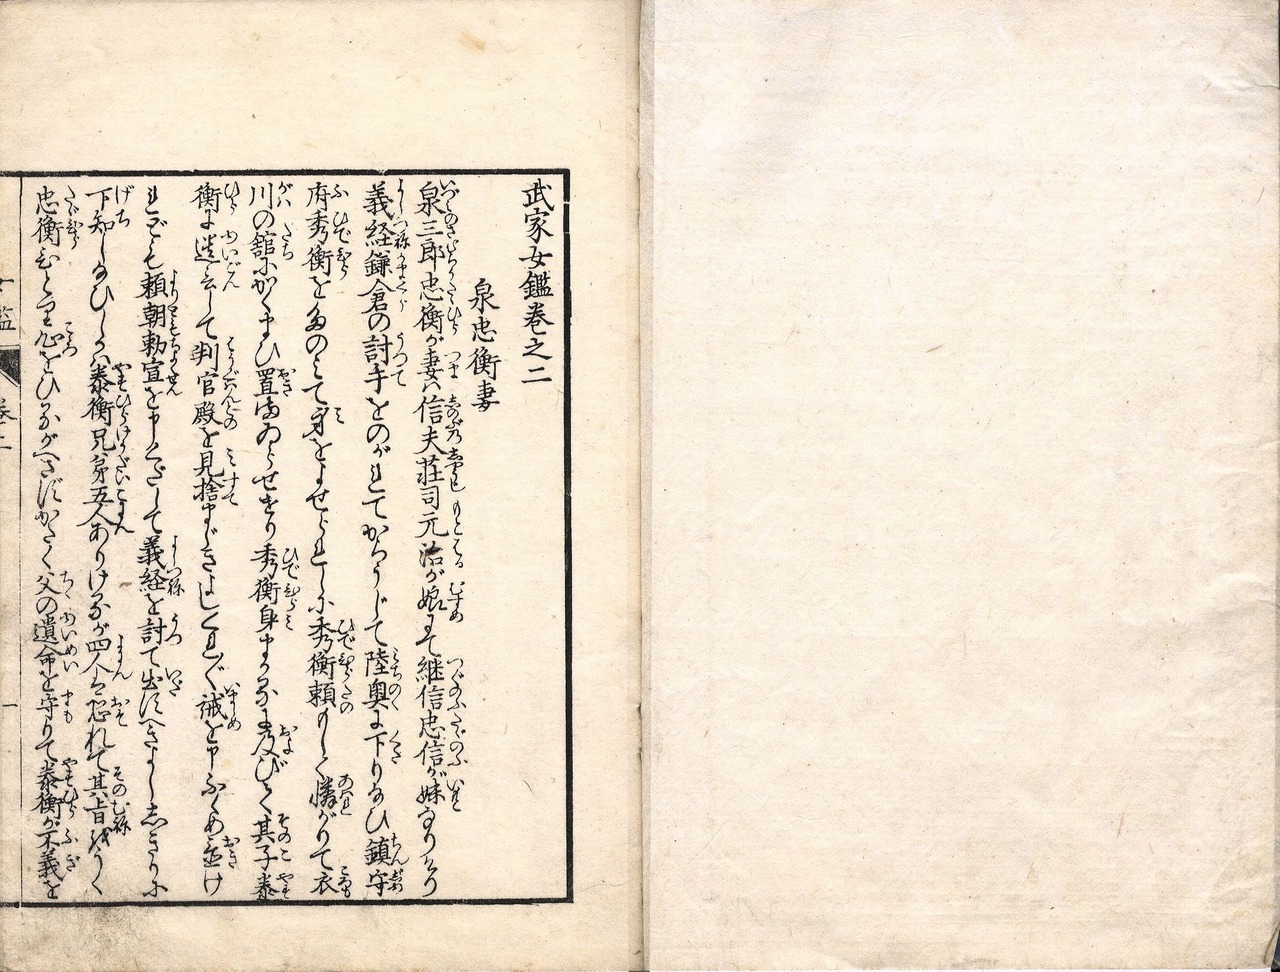 武家女鑑巻之二
泉忠衡妻
泉三郎忠衡が妻ハ信夫荘司元治が娘にて継信忠信が妹なりけり
義経鎌倉の討手をのがれてからうじて陸奥に下り給ひ鎮守
府秀衡をたのミて身をよせられしに秀衡頼もしく憐がりて衣
川の舘にかくまひ置まゐらせけり秀衡身まかるに及びて其子泰
衡に遺言して判官殿を見捨まじきよしくれ〲誡を申ふくめ置け
れども頼朝勅宣を申くだして義経を討て出すべきよししきりに
下知し給ひしかバ泰衡兄弟五人ありけるが四人は恐れて其旨をうく
忠衡ひとり心をひるがへさずかたく父の遺命を守りて泰衡が不義を
女鑑
巻二
一